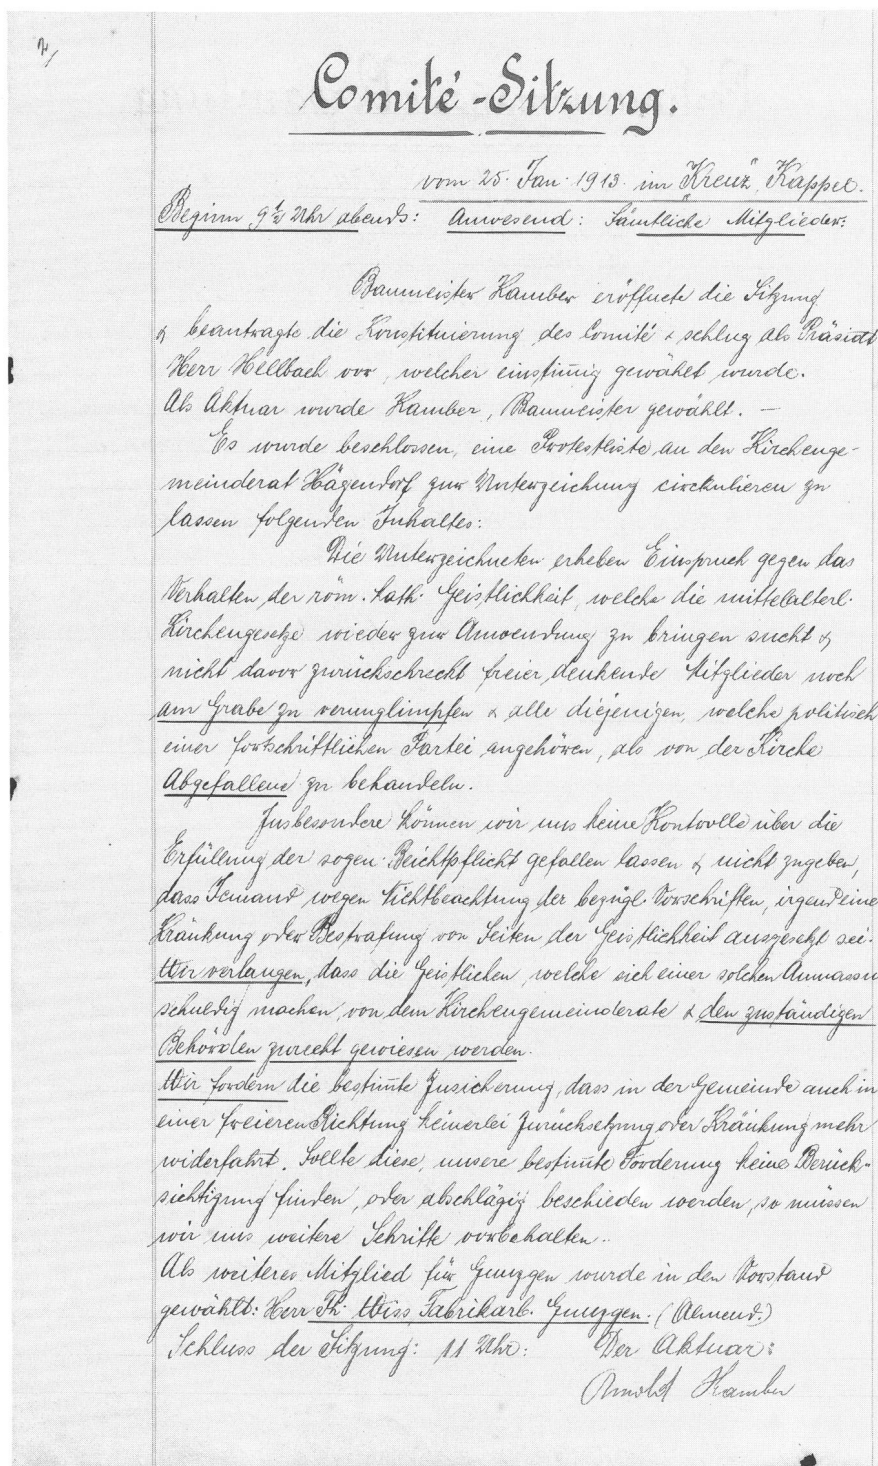 2/
Comité-Sitzung.
vom 25. Jan. 1913. im "Kreuz", Kappel.
Beginn 9½ Uhr abends: Anwesend: Sämtliche Mitglieder:
Baumeister Kamber eröffnete die Sitzung
& beantragte die Konstituierung des Comité & schlug als Präsident
Herr Hellbach vor, welcher einstim̅ig gewählt wurde.
Als Aktuar wurde Kamber, Baumeister gewählt. —
Es wurde beschlossen, eine Protestliste an den Kirchenge-
meinderat Hägendorf zur Unterzeichung circkulieren zu
lassen folgenden Inhaltes:
Die Unterzeichneten erheben Einspruch gegen das
Verhalten der röm. kath. Geistlichkeit, welche die mittelalterl.
Kirchengesetze wieder zur Anwendung zu bringen sucht &
nicht davor zurückschreckt freier denkende Mitglieder noch
am Grabe zu verunglimpfen & alle diejenigen, welche politisch
einer fortschrittlichen Partei angehören, als von der Kirche
Abgefallene zu behandeln.
Insbesondere können wir uns keine Kontrolle über die
Erfüllung der sogen. Beichtpflicht gefallen lassen & nicht zugeben,
dass Jemand wegen Nichtbeachtung der bezügl. Vorschriften, irgend eine
Kränkung oder Bestrafung von Seiten der Geistlichkeit ausgesetzt sei.
Wir verlangen, dass die Geistlichen, welche sich einer solchen Anmassu
schuldig machen, von dem Kirchengemeinderate & den zuständigen
Behörden zurecht gewiesen werden.
Wir fordern die bestim̅te Zusicherung, dass in der Gemeinde auch in
einer freieren Richtung keinerlei Zurücksetzung oder Kränkung mehr
widerfährt. Sollte diese, unsere bestim̅te Forderung keine Berück-
sichtigung finden, oder abschlägig beschieden werden, so müssen
wir uns weitere Schritte vorbehalten.
Als weiteres Mitglied für Gunzgen wurde in den Vorstand
gewählt: Herr Th. Wiss, Fabrikarb. Gunzgen. (Almend.)
Schluss der Sitzung: 11 Uhr: Der Aktuar:
Arnold Kamber